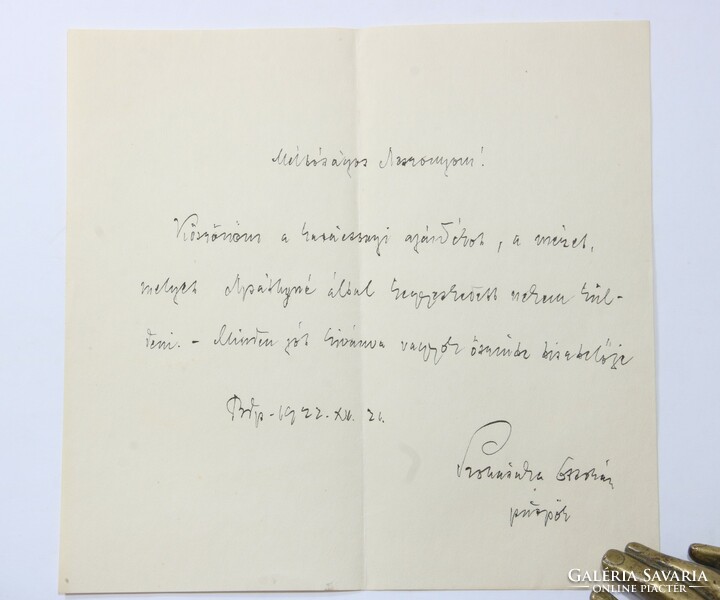 Méltóságos Asszonyom!
Köszönöm a karácsonyi ajándékot, a mézet,
melyet Apáthyné által kegyeskedett nekem kül-
deni. - Minden jót kivánva vagyok őszinte tisztelője
Bdp - 1922. XII. 21.
István
püspök
GALÉRIA SAVARIA
ONLINE PIACTÉR